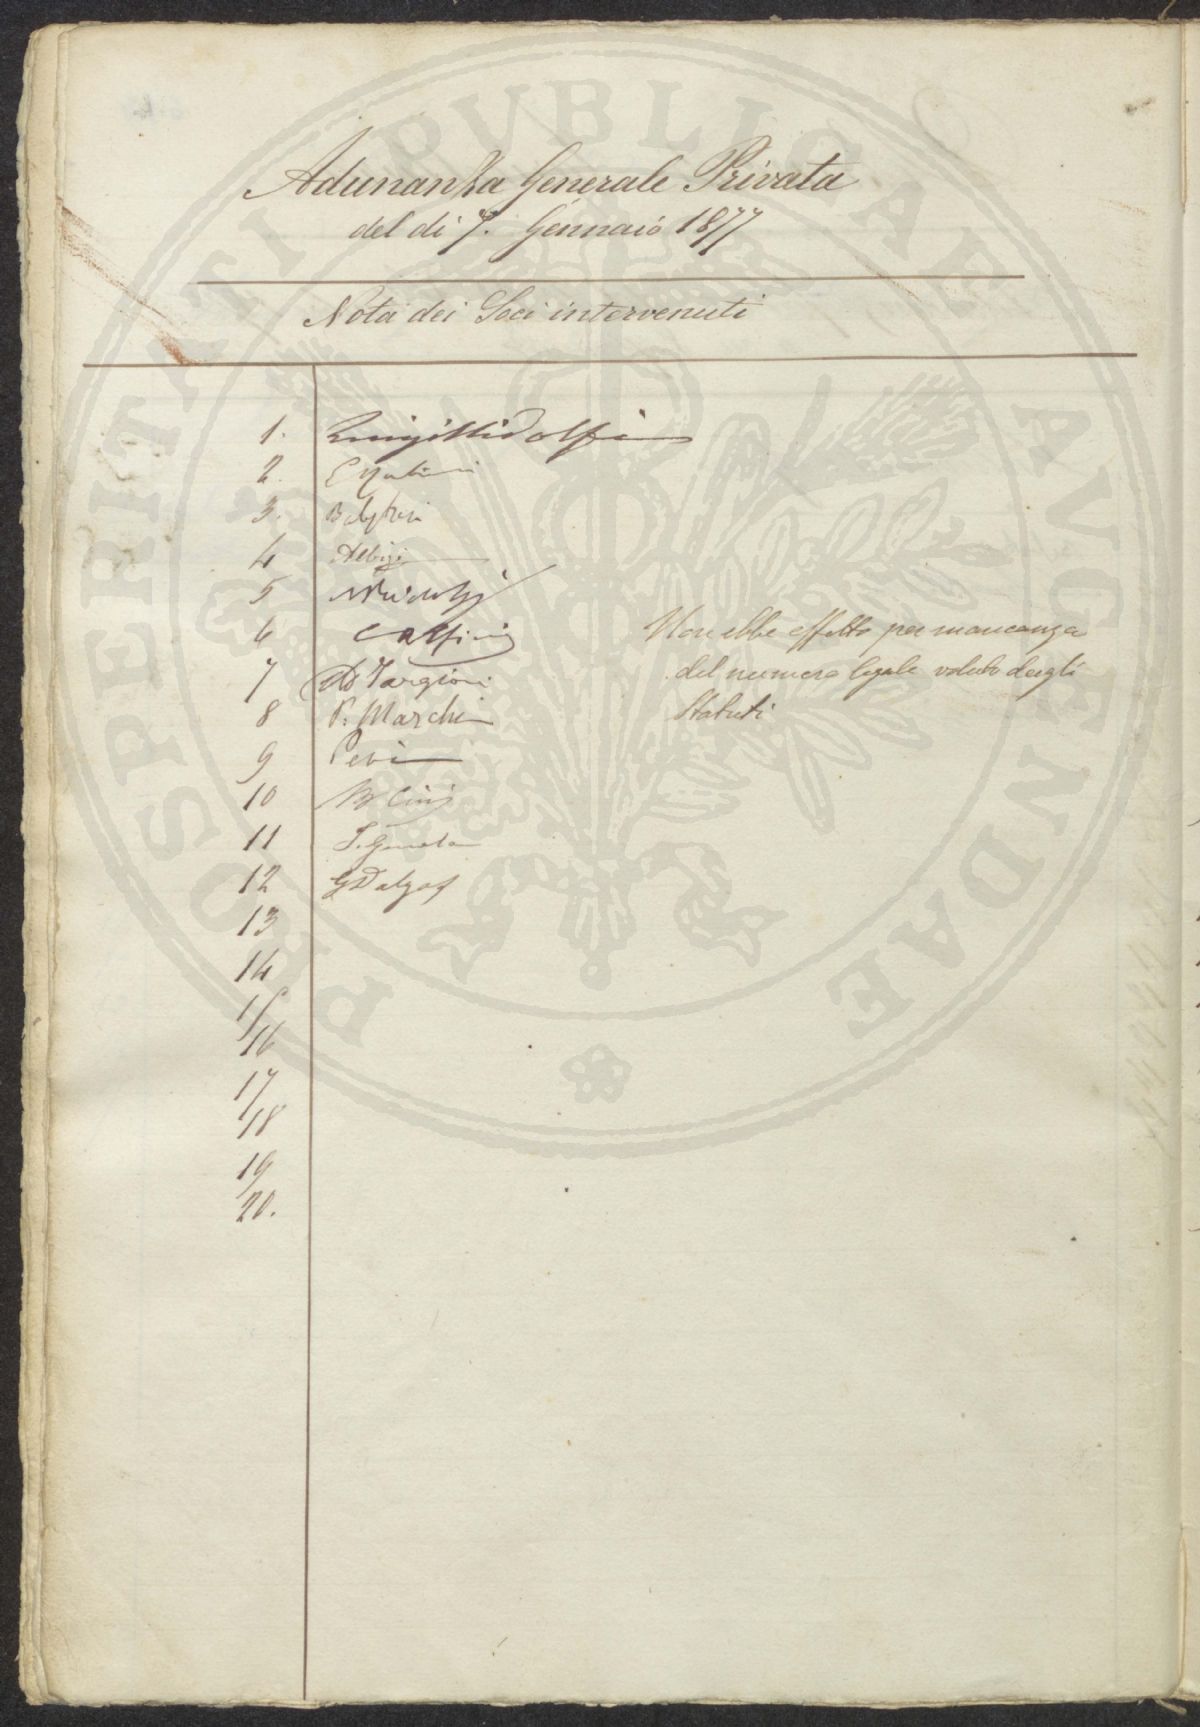 Adunanza Generale Privata
del di 7. Gennaio 1877
Nota dei Soci intervenuti
1. Luigi Ridolfi
2.
3.
4 Albizi
5
6
7 Targioni
8 P. Marchi
9
10 B Cini
11
12 G Dalgas
13
14
15
16
17
18
19
20.
Non ebbe effetto per mancanza
del numero legale voluto dagli
Statuti
PROSPERITATI PVBLICAE AVGENDAE